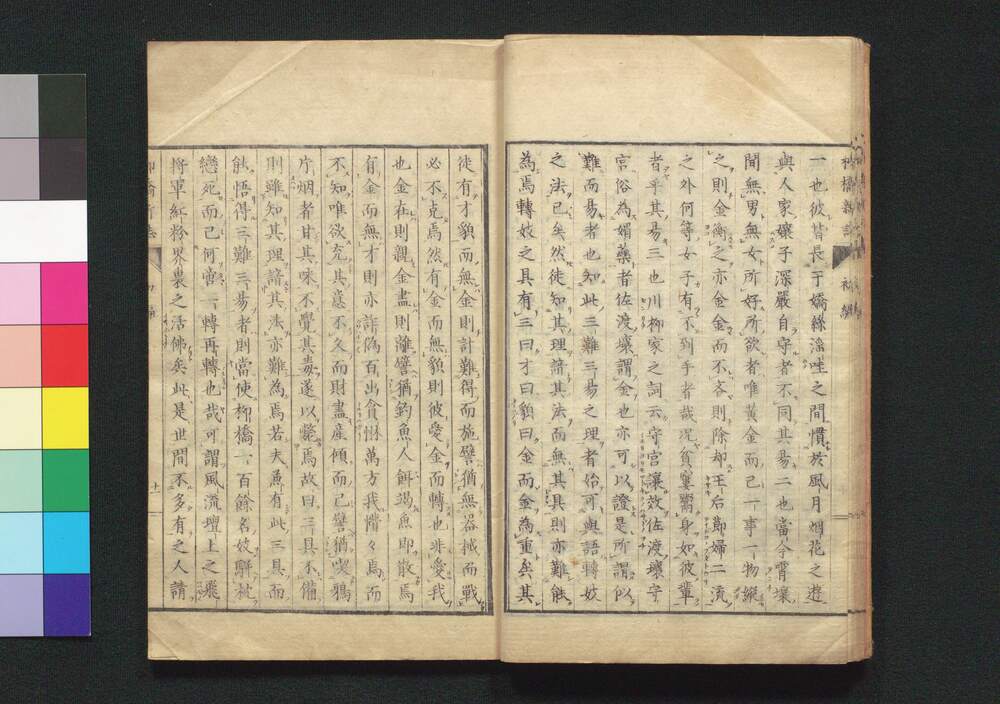 一也彼皆長于嬌絲滛哇之間慣於風月烟花之遊
與人家孃子深嚴自守者不同其易二也當今霄壤
間無男無女所好所欲者唯黃金而已一事一物縱
之則金衡之亦金金而不吝則除却王后節婦二流
之外何等女子有不到手者哉况貧窶鬻身如彼輩
者乎其易三也川柳家之詞云守宮讓效佐渡壤守
宮俗為媚藥者佐渡壤謂金也亦可以證是所謂似
難而易者也知此三難三易之理者始可與語轉妓
之法已矣然徒知其理諳其法而無其具則亦難能
為焉轉妓之具有三曰才曰貌曰金而金為重矣其
徒有才貌而無金則計難得而施譬猶無器械而戰
必不克焉然有金而無貌則彼愛金而轉也非愛我
也金在則親金盡則離譬猶釣魚人餌竭魚即散焉
有金而無才則亦詐偽百出貪惏萬方我懵々焉而
不知唯欲充其意不久而財盡產傾而已譬猶喫鴉
片烟者甘其味不覺其毒遂以斃焉故曰三具不備
則雖知其理諳其法亦難為焉若夫兼有此三具而
能悟得三難三易者則當使柳橋一百餘名妓駢枕
戀死而已何啻一轉再轉也哉可謂風流壇上之飛
將軍紅粉界裏之活佛矣此是世間不多有之人請
十一